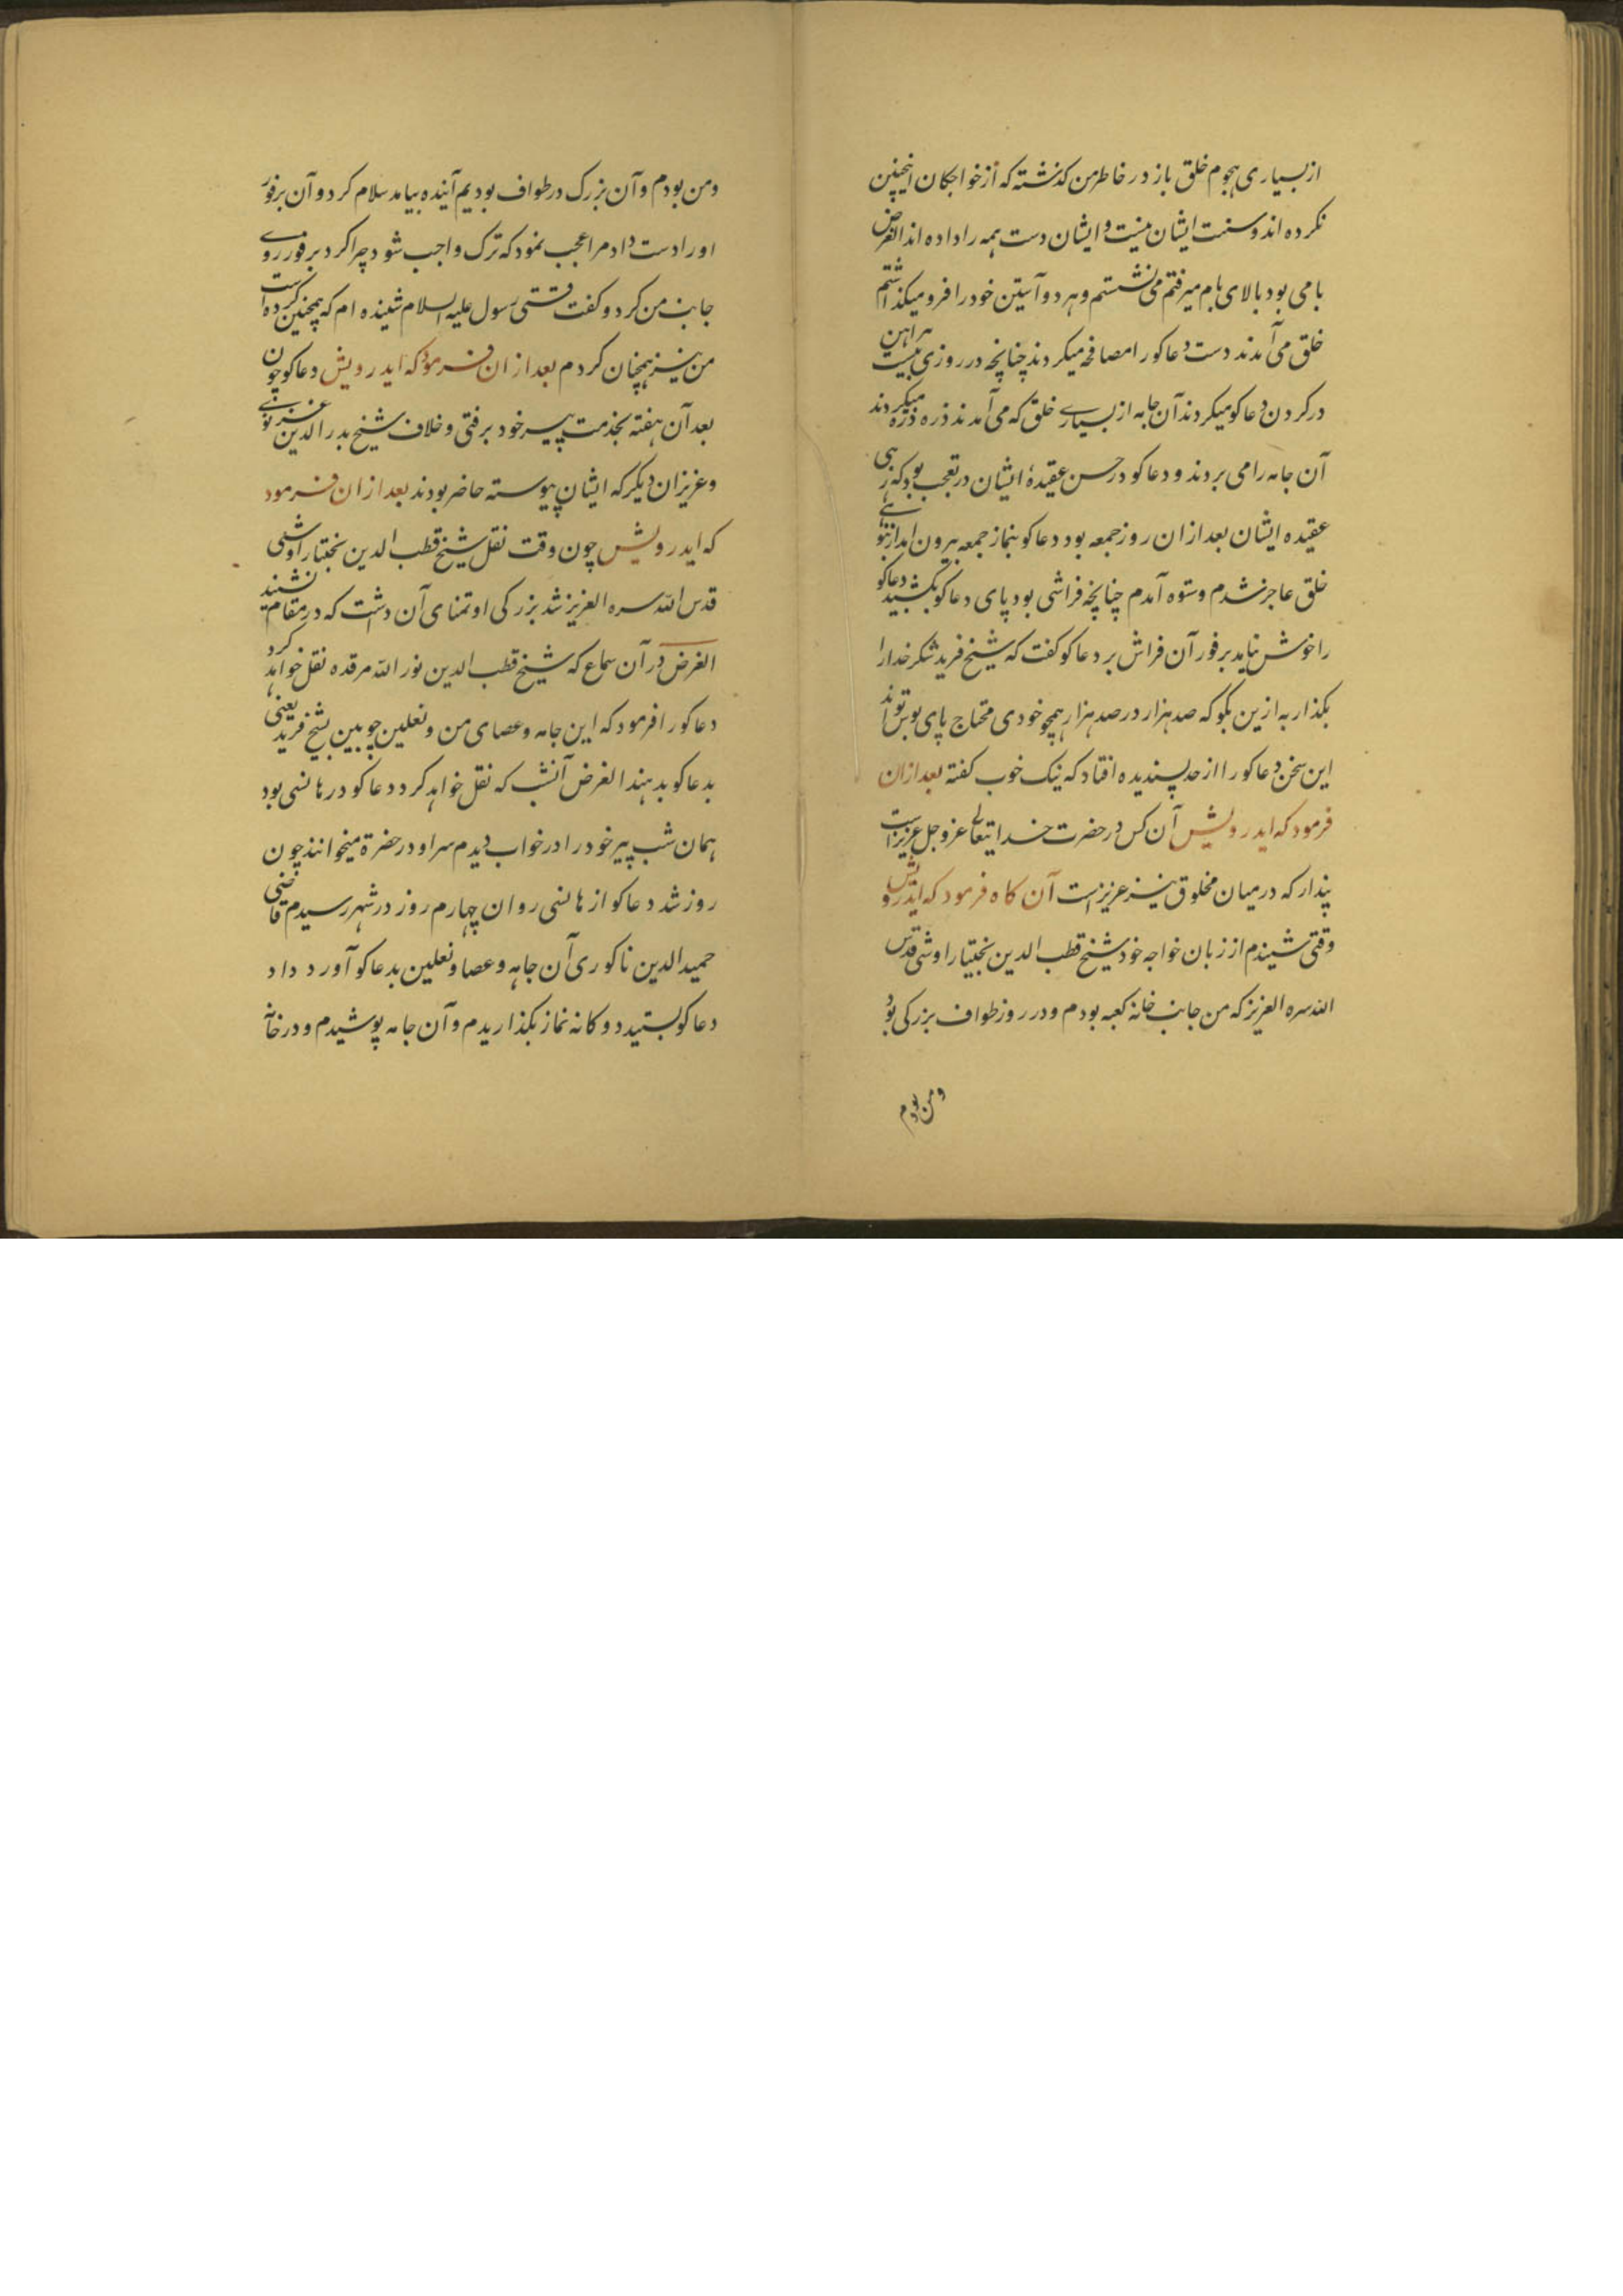 از بسیاری هجوم خلق باز در خاطر من کذشته که از خواجکان اینچنین
نکرده اند و سنت ایشان نیست و ایشان دست همه را داده اند الغرض
بامی بود بالای بام میرفتم می نشستم و هر دو آستین خود را فرو میکذاشتم
خلق می آمدند دست دعاکو را مصافحه میکردند چنانچه در روزی بیست پراهن
در کردن دعاکو میکردند آن جامه از بسیارے خلق که می آمدند ذره ذره میکردند
آن جامه را می بردند و دعاکو در حسن عقیدهٔ ایشان در تعجب بود که زهی
عقیده ایشان بعد ازان روز جمعه بود دعاکو بنماز جمعه بیرون آمد از
خلق عاجز شدم و ستوه آمدم چنانچه فراشی بود پای دعاکو بکشید دعاکو
را خوش نیامد بر فور آن فراش بر دعاکو کفت که شیخ فرید شکر خدا را
بکذار به ازین بکو که صد هزار در صد هزار همچو خودی محتاج پای بوس تواند
این سخن دعاکو را از حد پسندیده افتاد که نیک خوب کفته بعد ازان
فرمود که ایدرویش آن کس در حضرت خدایتعالے عز و جل عزیز است
پندار که در میان مخلوق نیز عزیز است آن کاه فرمود که ایدرویش
وقتی شنیدم از زبان خواجه خود شیخ قطب الدین بختیار اوشی قدس
الله سره العزیز که من جانب خانه کعبه بودم و در روز طواف بزرکی بود
ومن بودم
ومن بودم و آن بزرک در طواف بودیم آینده بیامد سلام کرد و آن بر فور
او را دست داد مرا عجب نمود که ترک واجب شود چرا کرد بر فور روے
جانب من کرد و کفت وقتی رسول علیه السلام شنیده ام که همچنین کرده است
من نیز همچنان کردم بعد ازان فرمود که ایدرویش دعاکو چون
بعد آن هفته بخدمت پیر خود برفتی و خلاف شیخ بدر الدین غزنوے
و عزیزان دیکر که ایشان پیوسته حاضر بودند بعد ازان فرمود
که ایدرویش چون وقت نقل شیخ قطب الدین بختیار اوشی
قدس الله سره العزیز شد بزرکی او تمنای آن داشت که در مقام نشیند
الغرض در آن سماع که شیخ قطب الدین نور الله مرقده نقل خواهد کرد
دعاکو را فرمود که این جامه و عصای من و نعلین چوبین بشیخ فرید یعنی
بدعاکو بدهند الغرض آنشب که نقل خواهد کرد دعاکو در هانسی بود
همان شب پیر خود را در خواب دیدم سرا و در حضرة میخوانند چون
روز شد دعاکو از هانسی روان چهارم روز در شهر رسیدم قاضی
حمید الدین ناکوری آن جامه و عصا و نعلین بدعاکو آورد داد
دعاکو بستید دوکانه نماز بکذاریدم و آن جامه پوشیدم و در خانه